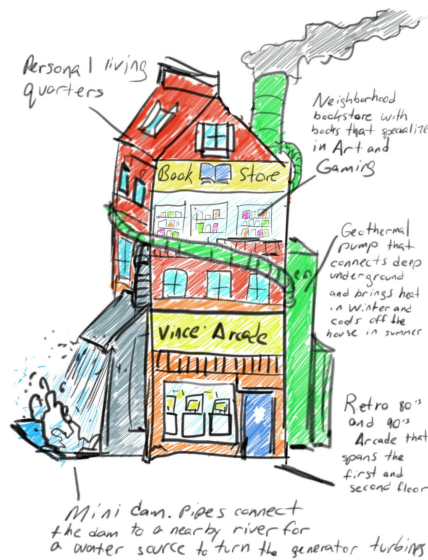 Personal living
quarters
Neighborhood
bookstore with
books that specialize
in Art and
Gaming
Book Store
Geothermal
pump that
connects deep
underground
and brings heat
in Winter and
cools off the
house in summer
Vince' Arcade
Retro 80's
and 90's
Arcade that
spans the
first and
second floor
Mini dam. Pipes connect
the dam to a nearby river for
a water source to turn the generator turbines